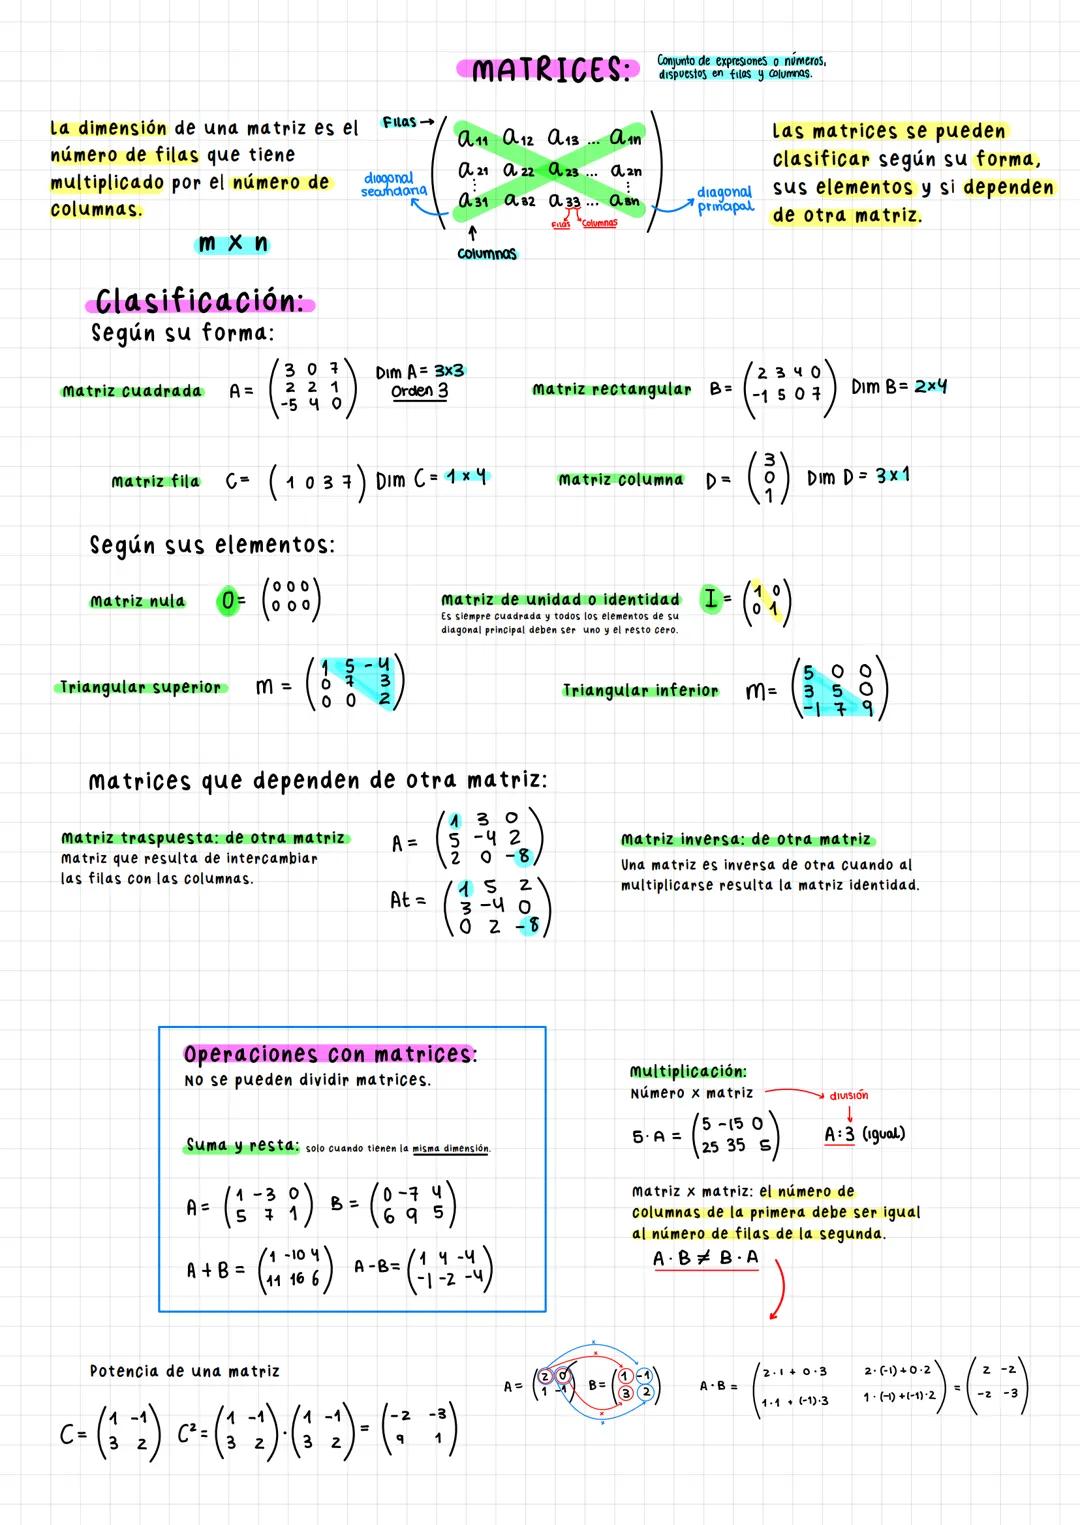 MATRICES:
Conjunto de expresiones o números,
dispuestos en filas y columnas.
La dimensión de una matriz es el
número de filas que tiene
multiplicado por el número de
columnas.
m x n
Filas →
diagonal
secundaria
a11 a12 a13 ... a1n
a21 a22 a23 ... a2n
⋮ ⋮
a31 a32 a33 ... a3n
Filas Columnas
↑
columnas
diagonal
principal
Las matrices se pueden
clasificar según su forma,
sus elementos y si dependen
de otra matriz.
Clasificación:
Según su forma:
Matriz cuadrada A =
3 0 7
2 2 1
-5 4 0
Dim A = 3x3
Orden 3
Matriz rectangular B =
2 3 4 0
-1 5 0 7
Dim B = 2x4
Matriz fila C = ( 1 0 3 7 ) Dim C = 1 x 4
Matriz columna D =
3
0
1
Dim D = 3x1
Según sus elementos:
Matriz nula O =
0 0 0
0 0 0
Matriz de unidad o identidad I =
1 0
0 1
Es siempre cuadrada y todos los elementos de su
diagonal principal deben ser uno y el resto cero.
Triangular superior m =
1 5 -4
0 7 3
0 0 2
Triangular inferior m =
5 0 0
3 5 0
-1 7 9
Matrices que dependen de otra matriz:
Matriz traspuesta: de otra matriz
Matriz que resulta de intercambiar
las filas con las columnas.
A =
1 3 0
5 -4 2
2 0 -8
At =
1 5 2
3 -4 0
0 2 -8
Matriz inversa: de otra matriz
Una matriz es inversa de otra cuando al
multiplicarse resulta la matriz identidad.
Operaciones con matrices:
No se pueden dividir matrices.
Suma y resta: solo cuando tienen la misma dimensión.
A =
1 -3 0
5 7 1
B =
0 -7 4
6 9 5
A + B =
1 -10 4
11 16 6
A - B =
1 4 -4
-1 -2 -4
Multiplicación:
Número x matriz
división
5 · A =
5 -15 0
25 35 5
A : 3 (igual)
Matriz x matriz: el número de
columnas de la primera debe ser igual
al número de filas de la segunda.
A · B ≠ B · A
Potencia de una matriz
C =
1 -1
3 2
C² =
1 -1
3 2
·
1 -1
3 2
=
-2 -3
9 1
x
x
A =
2 0
1 -1
B =
1 -1
3 2
x
x
A · B =
2·1 + 0·3 2·(-1)+0·2
1·1 + (-1)·3 1·(-1)+(-1)·2
=
2 -2
-2 -3